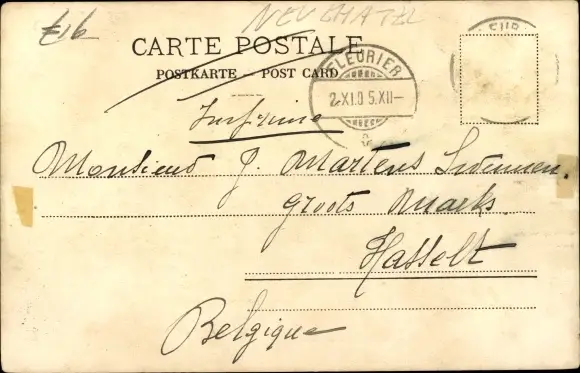 £16
NEUCHATEL
CARTE POSTALE
POSTKARTE – POST CARD
FLEURIER
2·XI.0 5.XII–
FLEUR
Imprimé
Monsieur J. Martens Swennen.
Groote Maeks.
Hasselt
Belgique